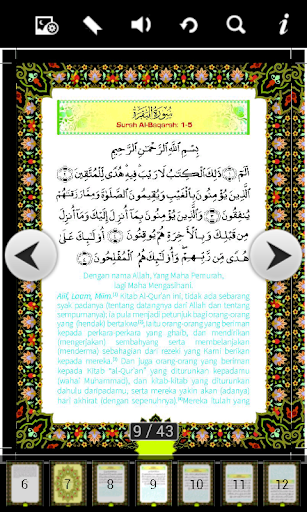 سُورَةُ الْبَقَرَةِ
Surah Al-Baqarah: 1-5
بِسْمِ اللَّهِ الرَّحْمَٰنِ الرَّحِيمِ
الٓمٓ ۝ ذَٰلِكَ الْكِتَٰبُ لَا رَيْبَ فِيهِ هُدًى لِّلْمُتَّقِينَ ۝
الَّذِينَ يُؤْمِنُونَ بِالْغَيْبِ وَيُقِيمُونَ الصَّلَوٰةَ وَمِمَّا رَزَقْنَٰهُمْ
يُنفِقُونَ ۝ وَالَّذِينَ يُؤْمِنُونَ بِمَا أُنزِلَ إِلَيْكَ وَمَا أُنزِلَ
مِن قَبْلِكَ وَبِالْآخِرَةِ هُمْ يُوقِنُونَ ۝ أُولَٰئِكَ عَلَىٰ
هُدًى مِّن رَّبِّهِمْ وَأُولَٰئِكَ هُمُ الْمُفْلِحُونَ ۝
Dengan nama Allah, Yang Maha Pemurah,
lagi Maha Mengasihani.
Alif, Laam, Miim.[1] Kitab Al-Qur'an ini, tidak ada sebarang
syak padanya (tentang datangnya dari Allah dan tentang
sempurnanya); ia pula menjadi petunjuk bagi orang-orang
yang (hendak) bertakwa; Iaitu orang-orang yang beriman
kepada perkara-perkara yang ghaib, dan mendirikan
(mengerjakan) sembahyang serta membelanjakan
(menderma) sebahagian dari rezeki yang Kami berikan
kepada mereka. Dan juga orang-orang yang beriman
kepada Kitab "al-Qur'an" yang diturunkan kepadamu
(wahai Muhammad), dan kitab-kitab yang diturunkan
dahulu daripadamu, serta mereka yakin akan (adanya)
hari akhirat (dengan sepenuhnya). Mereka itulah yang
9 / 43
6 7 8 9 10 11 12